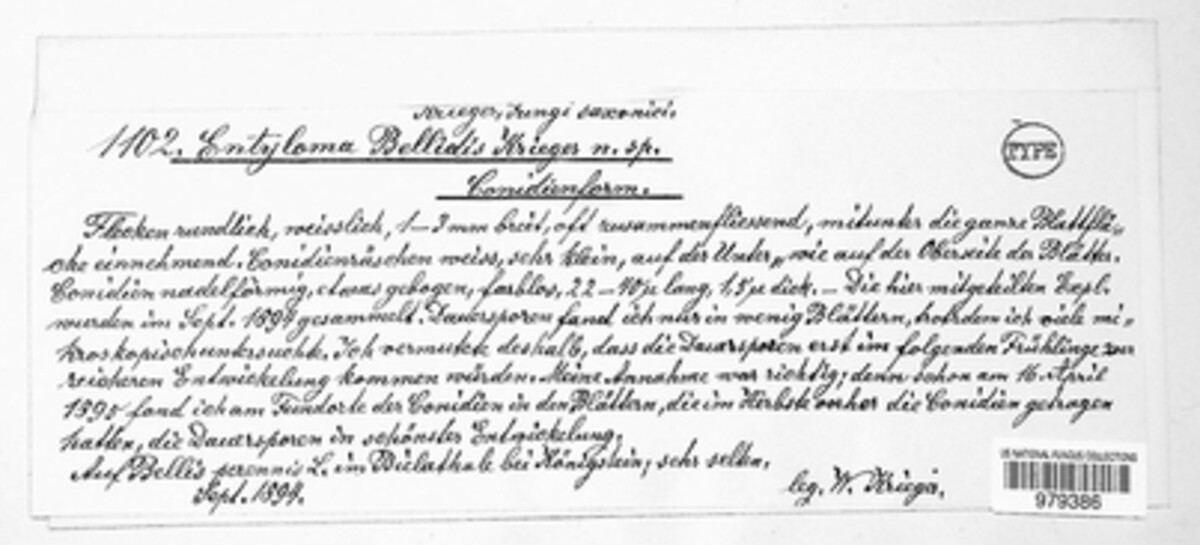 Krieger, Fungi saxonici.
1102. Entyloma Bellidis Krieger n. sp.
TYPE
Conidienform.
Flecken rundlich, weisslich, 1–3 mm breit, oft zusammenfliessend, mitunter die ganze Blattflä„
che einnehmend. Conidienräschen weiss, sehr klein, auf der Unter„ wie auf der Oberseite der Blätter.
Conidien nadelförmig, etwas gebogen, farblos, 22–40µ lang, 1,5µ dick. – Die hier mitgeteilten Expl.
wurden im Sept. 1894 gesammelt. Dauersporen fand ich nur in wenig Blättern, trotzdem ich viele mi„
kroskopisch untersuchte. Ich vermutete deshalb, dass die Dauersporen erst im folgenden Frühlinge zur
reicheren Entwickelung kommen würden. Meine Annahme war richtig; denn schon am 16. April
1895 fand ich am Fundorte der Conidien in den Blättern, die im Herbste vorher die Conidien getragen
hatten, die Dauersporen in schönster Entwickelung.
Auf Bellis perennis L. im Bielathale bei Königstein; sehr selten.
Sept. 1894.
leg. W. Krieger.
US NATIONAL FUNGUS COLLECTIONS
979386